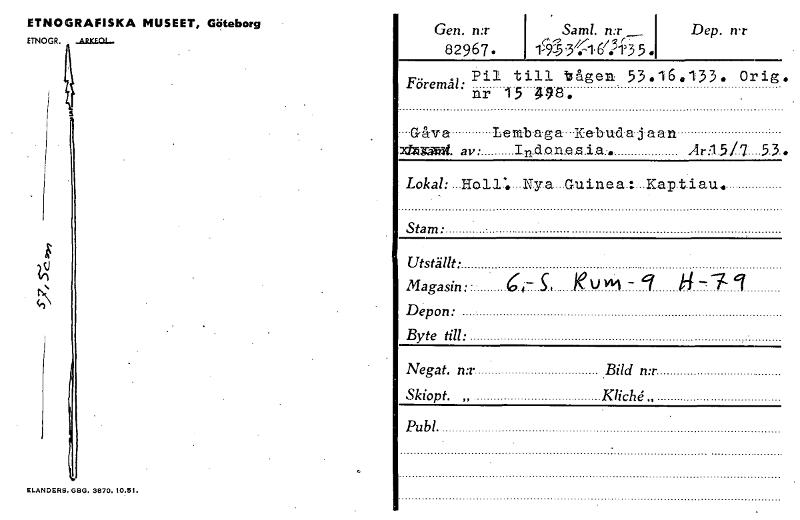 ETNOGRAFISKA MUSEET, Göteborg
ETNOGR. ARKEOL.
57,5cm
ELANDERS, GBG. 3870. 10.51.
Gen. n:r Saml. n:r Dep. n:r
82967. 1953.16.135.
Föremål: Pil till bågen 53.16.133. Orig.
nr 15 498.
Gåva Lembaga Kebudajaan
av: Indonesia. År: 15/7 53.
Lokal: Holl. Nya Guinea: Kaptiau.
Stam:
Utställt:
Magasin: 6.-S. Rum-9 H-79
Depon:
Byte till:
Negat. n:r Bild n:r
Skiopt. „ Kliché „
Publ.